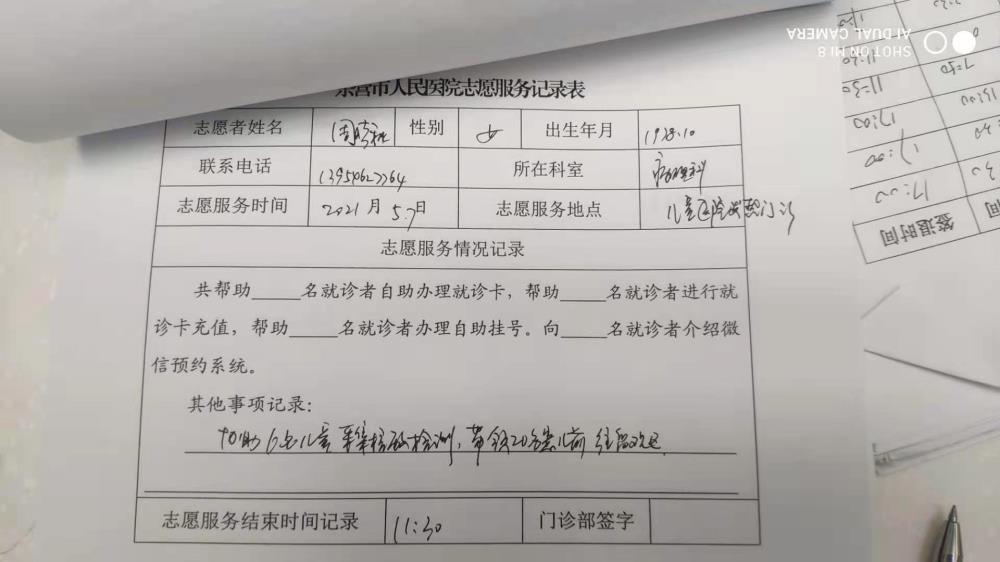 东营市人民医院志愿服务记录表
志愿者姓名 性别 女 出生年月 1978.10
联系电话 所在科室 病理科
志愿服务时间 2021年5月7日 志愿服务地点 儿童医院发热门诊
志愿服务情况记录
共帮助_____名就诊者自助办理就诊卡，帮助_____名就诊者进行就
诊卡充值，帮助_____名就诊者办理自助挂号。向_____名就诊者介绍微
信预约系统。
其他事项记录：
协助6名儿童采集核酸检测，带领20名患儿前往
志愿服务结束时间记录 11:30 门诊部签字
SHOT ON MI 8
AI DUAL CAMERA
签退时间
17:00
17:00
17:00
11:30
11:30